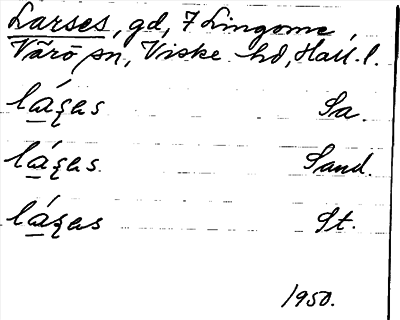 Larses, gd, 7 Lingome,
Värö sn, Viske hd, Hall. l.
láʂas Sa.
láʂas. Sand.
láʂas St.
1950.